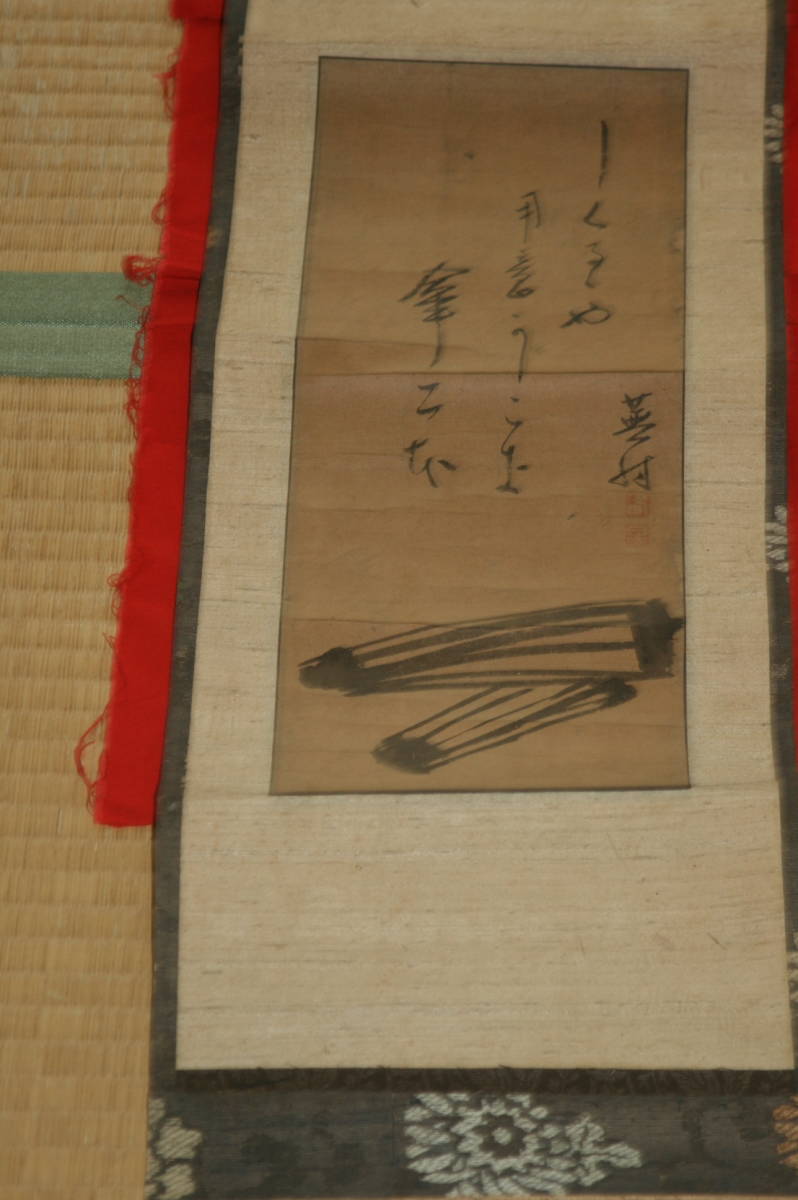 しくるや
用意かしこき
傘二本
蕪村